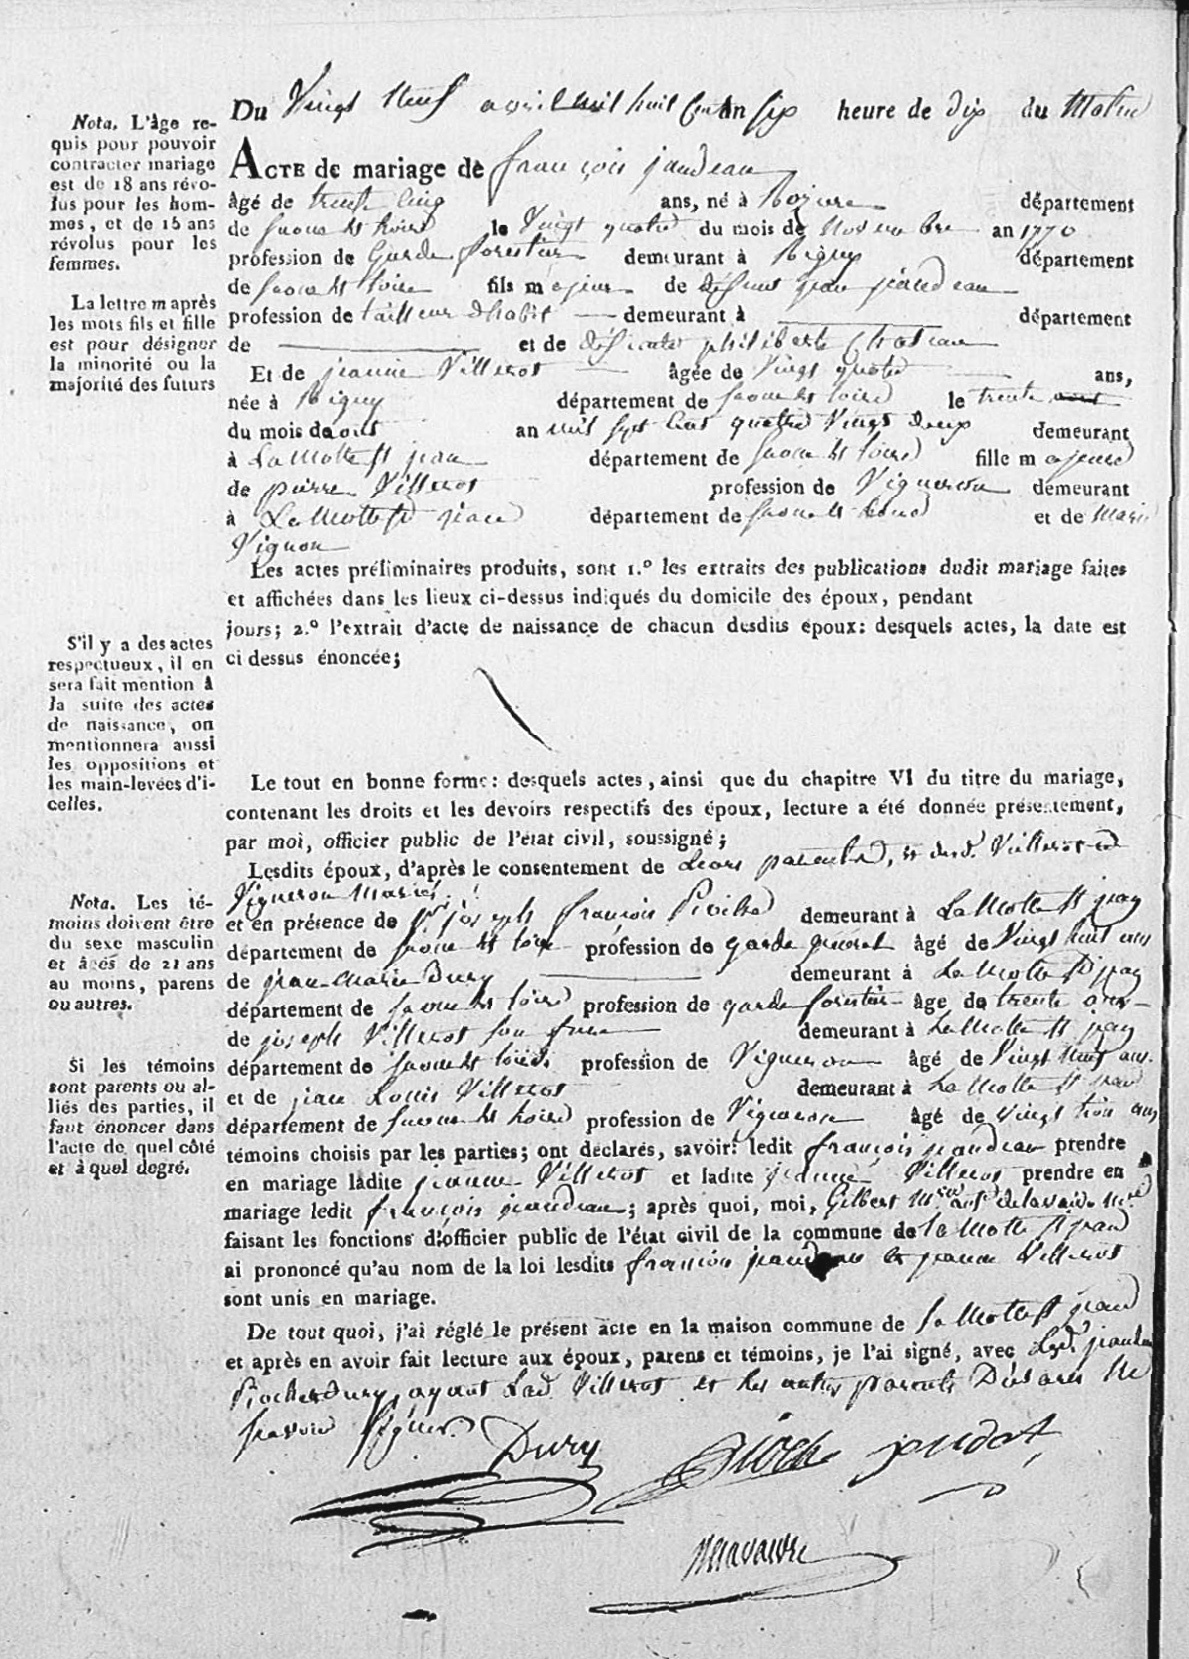 Du Vingt Neuf avril mil huit Cent an six heure de dix du Matin
Nota. L'âge re-
quis pour pouvoir
contracter mariage
est de 18 ans révo-
lus pour les hom-
mes, et de 15 ans
révolus pour les
femmes.
La lettre m après
les mots fils et fille
est pour désigner
la minorité ou la
majorité des futurs
ACTE de mariage de françois jandeau
âgé de trente cinq ans, né à département
de saone et loire le Vingt quatre du mois de Novembre an 1770
profession de Garde forestier demeurant à Rigny département
de saone et loire fils majeur de défunt jean jandeau
profession de tailleur d'habit demeurant à département
de et de défunte philiberte
Et de jeanne Villerot âgée de Vingt quatre ans,
née à Rigny département de saone et loire le trente
du mois de aout an mil sept cent quatre Vingt deux demeurant
à La Motte St jean département de saone et loire fille majeure
de pierre Villerot profession de Vigneron demeurant
à La Motte St jean département de saone et loire et de Marie
Vignon
Les actes préliminaires produits, sont 1.º les extraits des publications dudit mariage faites
et affichées dans les lieux ci-dessus indiqués du domicile des époux, pendant
jours; 2.º l'extrait d'acte de naissance de chacun desdits époux: desquels actes, la date est
ci dessus énoncée;
S'il y a des actes
respectueux, il en
sera fait mention à
la suite des actes
de naissance, on
mentionnera aussi
les oppositions et
les main-levées d'i-
celles.
Le tout en bonne forme: desquels actes, ainsi que du chapitre VI du titre du mariage,
contenant les droits et les devoirs respectifs des époux, lecture a été donnée présentement,
par moi, officier public de l'état civil, soussigné;
Lesdits époux, d'après le consentement de Leurs parents, Villerot et
Vigneron Mariés
Nota. Les té-
moins doivent être
du sexe masculin
et âgés de 21 ans
au moins, parens
ou autres.
et en présence de joseph françois demeurant à La Motte St jean
département de saone et loire profession de garde général âgé de Vingt huit ans
de jean Marie Dury demeurant à La Motte St jean
département de saone et loire profession de garde forestier âgé de trente ans
de joseph Villerot son frere demeurant à La Motte St jean
département de saone et loire profession de Vigneron âgé de Vingt neuf ans.
et de jean Louis Villerot demeurant à La Motte St jean
département de saone et loire profession de Vigneron âgé de vingt trois ans
Si les témoins
sont parents ou al-
liés des parties, il
faut énoncer dans
l'acte de quel côté
et à quel degré.
témoins choisis par les parties; ont déclarés, savoir: ledit françois jandeau prendre
en mariage ladite jeanne Villerot et ladite jeanne Villerot prendre en
mariage ledit françois jandeau; après quoi, moi, Gilbert
faisant les fonctions d'officier public de l'état civil de la commune de la Motte St jean
ai prononcé qu'au nom de la loi lesdits françois jandeau et jeanne Villerot
sont unis en mariage.
De tout quoi, j'ai réglé le présent acte en la maison commune de La Motte St jean
et après en avoir fait lecture aux époux, parens et témoins, je l'ai signé, avec
Dury, ayant Lad. Villerot et les autres parents Déclaré Ne
savoir signer.
Dury
jandot